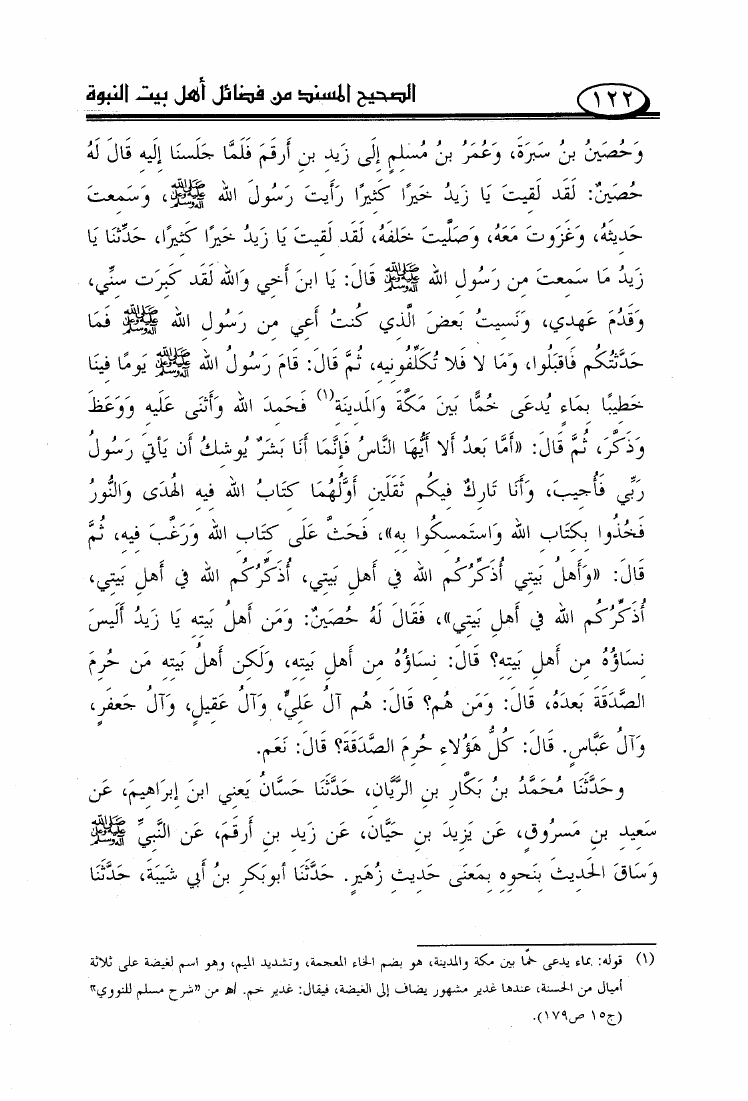 ١٢٢ الصحيح المسند من فضائل أهل بيت النبوة
وَحُصَينُ بنُ سَبرَةَ، وَعُمَرُ بنُ مُسلِمٍ إِلَى زَيدِ بنِ أَرقَمَ فَلَمَّا جَلَسنَا إِلَيهِ قَالَ لَهُ
حُصَينٌ: لَقَد لَقِيتَ يَا زَيدُ خَيرًا كَثِيرًا رَأَيتَ رَسُولَ الله ﷺ، وَسَمِعتَ
حَدِيثَهُ، وَغَزَوتَ مَعَهُ، وَصَلَّيتَ خَلفَهُ، لَقَد لَقِيتَ يَا زَيدُ خَيرًا كَثِيرًا، حَدِّثنَا يَا
زَيدُ مَا سَمِعتَ مِن رَسُولِ الله ﷺ قَالَ: يَا ابنَ أَخِي وَالله لَقَد كَبِرَت سِنِّي،
وَقَدُمَ عَهدِي، وَنَسِيتُ بَعضَ الَّذِي كُنتُ أَعِي مِن رَسُولِ الله ﷺ فَمَا
حَدَّثتُكُم فَاقبَلُوا، وَمَا لا فَلا تُكَلِّفُونِيهِ، ثُمَّ قَالَ: قَامَ رَسُولُ الله ﷺ يَومًا فِينَا
خَطِيبًا بِمَاءٍ يُدعَى خُمًّا بَينَ مَكَّةَ وَالمَدِينَةِ(١) فَحَمِدَ الله وَأَثنَى عَلَيهِ وَوَعَظَ
وَذَكَّرَ، ثُمَّ قَالَ: «أَمَّا بَعدُ أَلا أَيُّهَا النَّاسُ فَإِنَّمَا أَنَا بَشَرٌ يُوشِكُ أَن يَأتِيَ رَسُولُ
رَبِّي فَأُجِيبَ، وَأَنَا تَارِكٌ فِيكُم ثَقَلَينِ أَوَّلُهُمَا كِتَابُ الله فِيهِ الهُدَى وَالنُّورُ
فَخُذُوا بِكِتَابِ الله وَاستَمسِكُوا بِهِ»، فَحَثَّ عَلَى كِتَابِ الله وَرَغَّبَ فِيهِ، ثُمَّ
قَالَ: «وَأَهلُ بَيتِي أُذَكِّرُكُم الله فِي أَهلِ بَيتِي، أُذَكِّرُكُم الله فِي أَهلِ بَيتِي،
أُذَكِّرُكُم الله فِي أَهلِ بَيتِي»، فَقَالَ لَهُ حُصَينٌ: وَمَن أَهلُ بَيتِهِ يَا زَيدُ أَلَيسَ
نِسَاؤُهُ مِن أَهلِ بَيتِهِ؟ قَالَ: نِسَاؤُهُ مِن أَهلِ بَيتِهِ، وَلَكِن أَهلُ بَيتِهِ مَن حُرِمَ
الصَّدَقَةَ بَعدَهُ، قَالَ: وَمَن هُم؟ قَالَ: هُم آلُ عَلِيٍّ، وَآلُ عَقِيلٍ، وَآلُ جَعفَرٍ،
وَآلُ عَبَّاسٍ. قَالَ: كُلُّ هَؤُلاءِ حُرِمَ الصَّدَقَةَ؟ قَالَ: نَعَم.
وَحَدَّثَنَا مُحَمَّدُ بنُ بَكَّارِ بنِ الرَّيَّانِ، حَدَّثَنَا حَسَّانُ يَعنِي ابنَ إِبرَاهِيمَ، عَن
سَعِيدِ بنِ مَسرُوقٍ، عَن يَزِيدَ بنِ حَيَّانَ، عَن زَيدِ بنِ أَرقَمَ، عَن النَّبِيِّ ﷺ
وَسَاقَ الحَدِيثَ بِنَحوِهِ بِمَعنَى حَدِيثِ زُهَيرٍ. حَدَّثَنَا أبوبَكرِ بنُ أَبِي شَيبَةَ، حَدَّثَنَا
(١) قوله: بماء يدعى خمًّا بين مكة والمدينة، هو بضم الخاء المعجمة، وتشديد الميم، وهو اسم لغيضة على ثلاثة
أميال من الحسنة، عندها غدير مشهور يضاف إلى الغيضة، فيقال: غدير خم. اﻫ من "شرح مسلم للنووي"
(ج١٥ ص١٧٩).